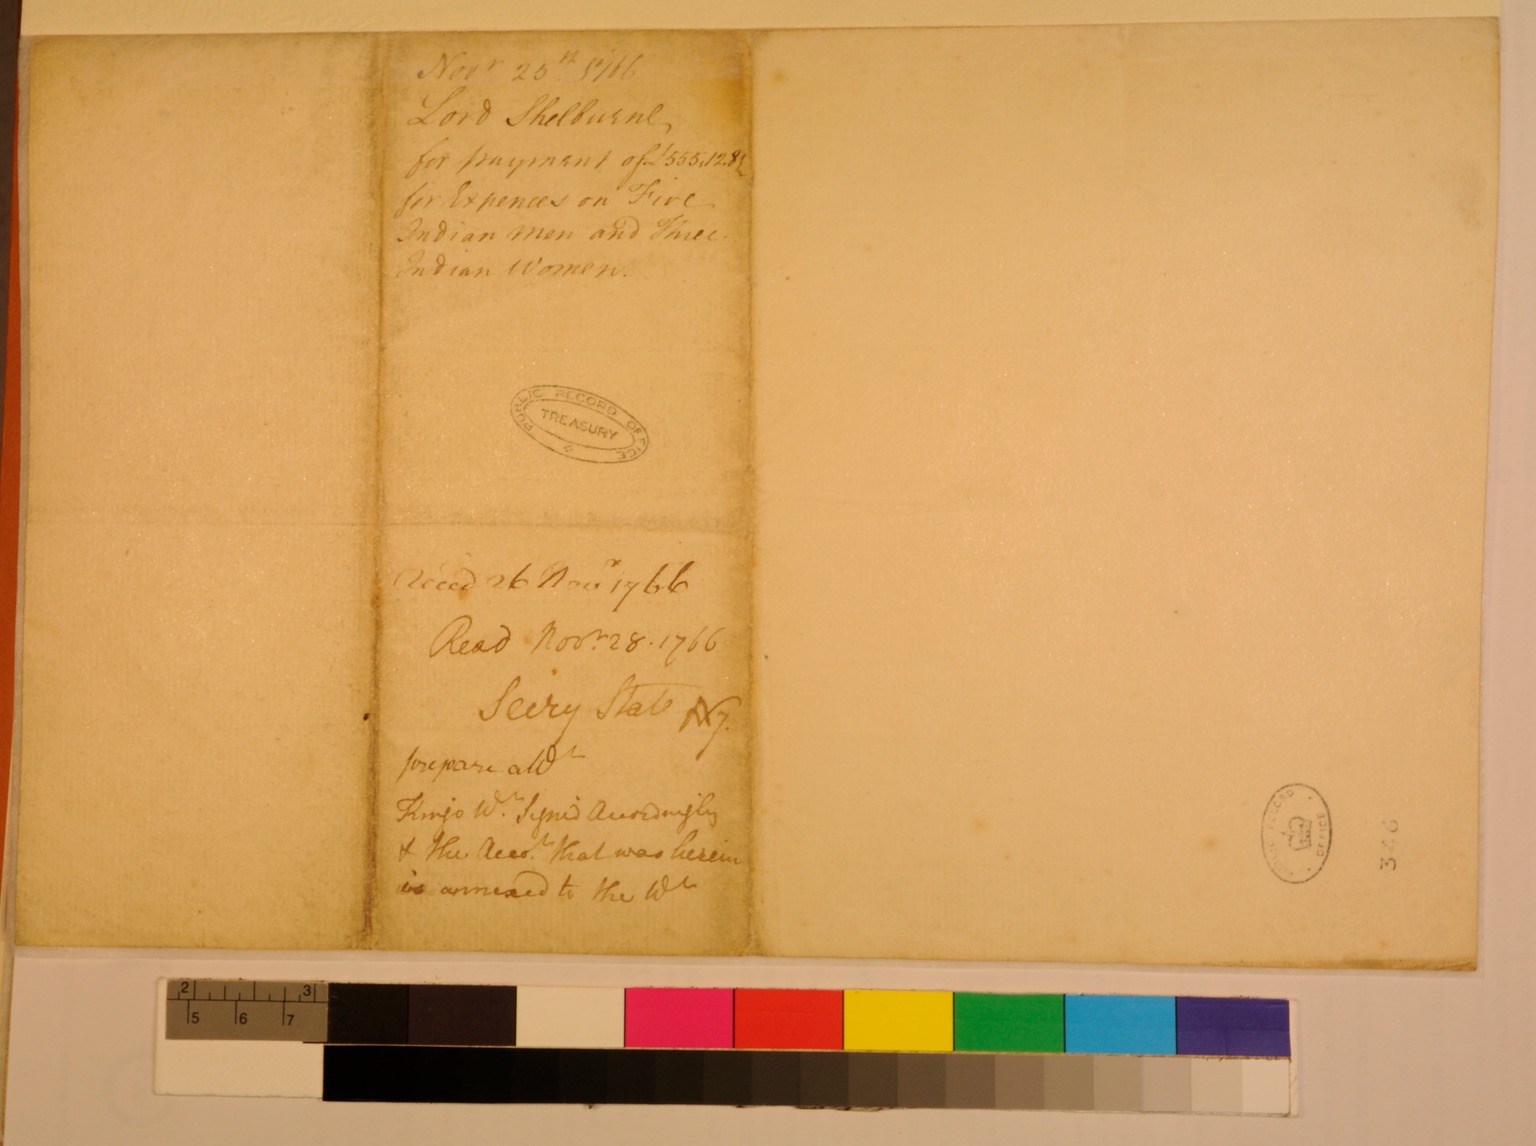 Novr 25th 1766
Lord Shelburne,
for payment of £555.12.8½
for Expences on Five
Indian Men and Three
Indian Women.
PUBLIC RECORD OFFICE
TREASURY
Recd 26 Novr 1766
Read Novr. 28. 1766
Secry State
prepare a Wt
Kings Wt. Signd Accordingly
& the Acco.t that was herein
is annexed to the Wt
RECORD OFFICE
346
2 3
5 6 7